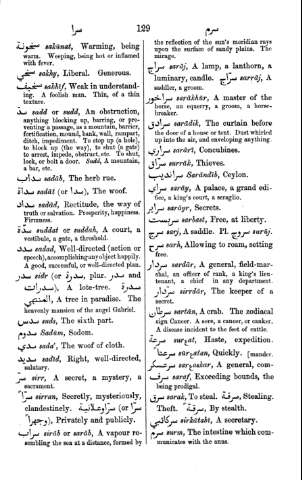 سرا 129 سرم
سخونة sakūnat, Warming, being
warm. Weeping, being hot or inflamed
with fever.
سخي sakhy, Liberal. Generous.
سخيف sakhīf, Weak in understand-
ing. A foolish man. Thin, of a thin
texture.
سد sadd or sudd, An obstruction,
anything blocking up, barring, or pre-
venting a passage, as a mountain, barrier,
fortification, mound, bank, wall, rampart,
ditch, impediment. To stop up (a hole),
to block up (the way), to shut (a gate)
to arrest, impede, obstruct, etc. To shut,
lock, or bolt a door. Sudd, A mountain,
a bar, etc.
سداب sadāb, The herb rue.
سداة sadāt (or سدا), The woof.
سداد sadād, Rectitude, the way of
truth or salvation. Prosperity, happiness.
Firmness.
سدة suddat or suddah, A court, a
vestibule, a gate, a threshold.
سدد sadad, Well-directed (action or
speech), accomplishing any object happily.
A good, successful, or well-directed plan.
سدر sidr (or سدرة, plur. سدر and
سدرات), A lote-tree. سدرة
المنتهي, A tree in paradise. The
heavenly mansion of the angel Gabriel.
سدس suds, The sixth part.
سدوم Sadūm, Sodom.
سدي sada', The woof of cloth.
سديد sadīd, Right, well-directed,
salutary.
سر sirr, A secret, a mystery, a
sacrament.
سرا sirran, Secretly, mysteriously,
clandestinely. سرا وعلانية (or سرا
وجهرا), Privately and publicly.
سراب sirāb or sarāb, A vapour re-
sembling the sea at a distance, formed by
the reflection of the sun's meridian rays
upon the surface of sandy plains. The
mirage.
سراج sarāj, A lamp, a lanthorn, a
luminary, candle. سراج sarrāj, A
saddler, a groom.
سراخور sarākhūr, A master of the
horse, an equerry, a groom, a horse-
breaker.
سرادق sarādik, The curtain before
the door of a house or tent. Dust whirled
up into the air, and enveloping anything.
سراري sarārī, Concubines.
سراق surrāk, Thieves.
سرانديب Sarāndīb, Ceylon.
سراي sarāy, A palace, a grand edi-
fice, a king's court, a seraglio.
سراير sarāyr, Secrets.
سربست sarbast, Free, at liberty.
سرج sarj, A saddle. Pl. سروج surūj.
سرح sarh, Allowing to roam, setting
free.
سردار sardār, A general, field-mar-
shal, an officer of rank, a king's lieu-
tenant, a chief in any department.
سردار sirrdār, The keeper of a
secret.
سرطان sartān, A crab. The zodiacal
sign Cancer. A sore, a cancer, or canker.
A disease incident to the feet of cattle.
سرعة surعat, Haste, expedition.
سرعتا surعatan, Quickly. [mander.
سرعسكر sarعaskar, A general, com-
سرف saraf, Exceeding bounds, the
being prodigal.
سرق sarak, To steal. سرقة, Stealing.
Theft. سرقة, By stealth.
سركاتبي sirkātabī, A secretary.
سرم surm, The intestine which com-
municates with the anus.